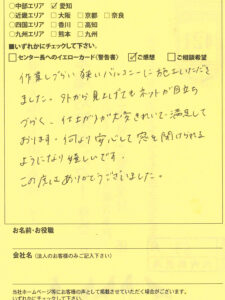 ○中部エリア ☑愛知
○近畿エリア □大阪 □京都 □奈良
○四国エリア □香川 □高知
○九州エリア □熊本 □九州
■いずれかにチェックして下さい。
□センター長へのイエローカード(警告書) ☑ご感想 □ご相談希望
作業しづらい狭いバルコニーに施工いただき
ました。外から見上げてもネットが目立ち
づらく、仕上がりが大変きれいで満足して
おります。何より安心して窓を開けられる
ようになり嬉しいです。
この度はありがとうございました。
お名前・お役職
会社名(法人のお客様のみご記入下さい)
ホームページ等にお客様の声として掲載させていただく場合がございます。
いずれかにチェックして下さい。